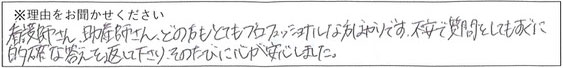 ※理由をお聞かせください
看護師さん、助産師さん、どの方もとてもプロフェッショナルな方ばかりです。不安で質問をしてもすぐに
的確な答えを返して下さり、そのたびに心が安心しました。